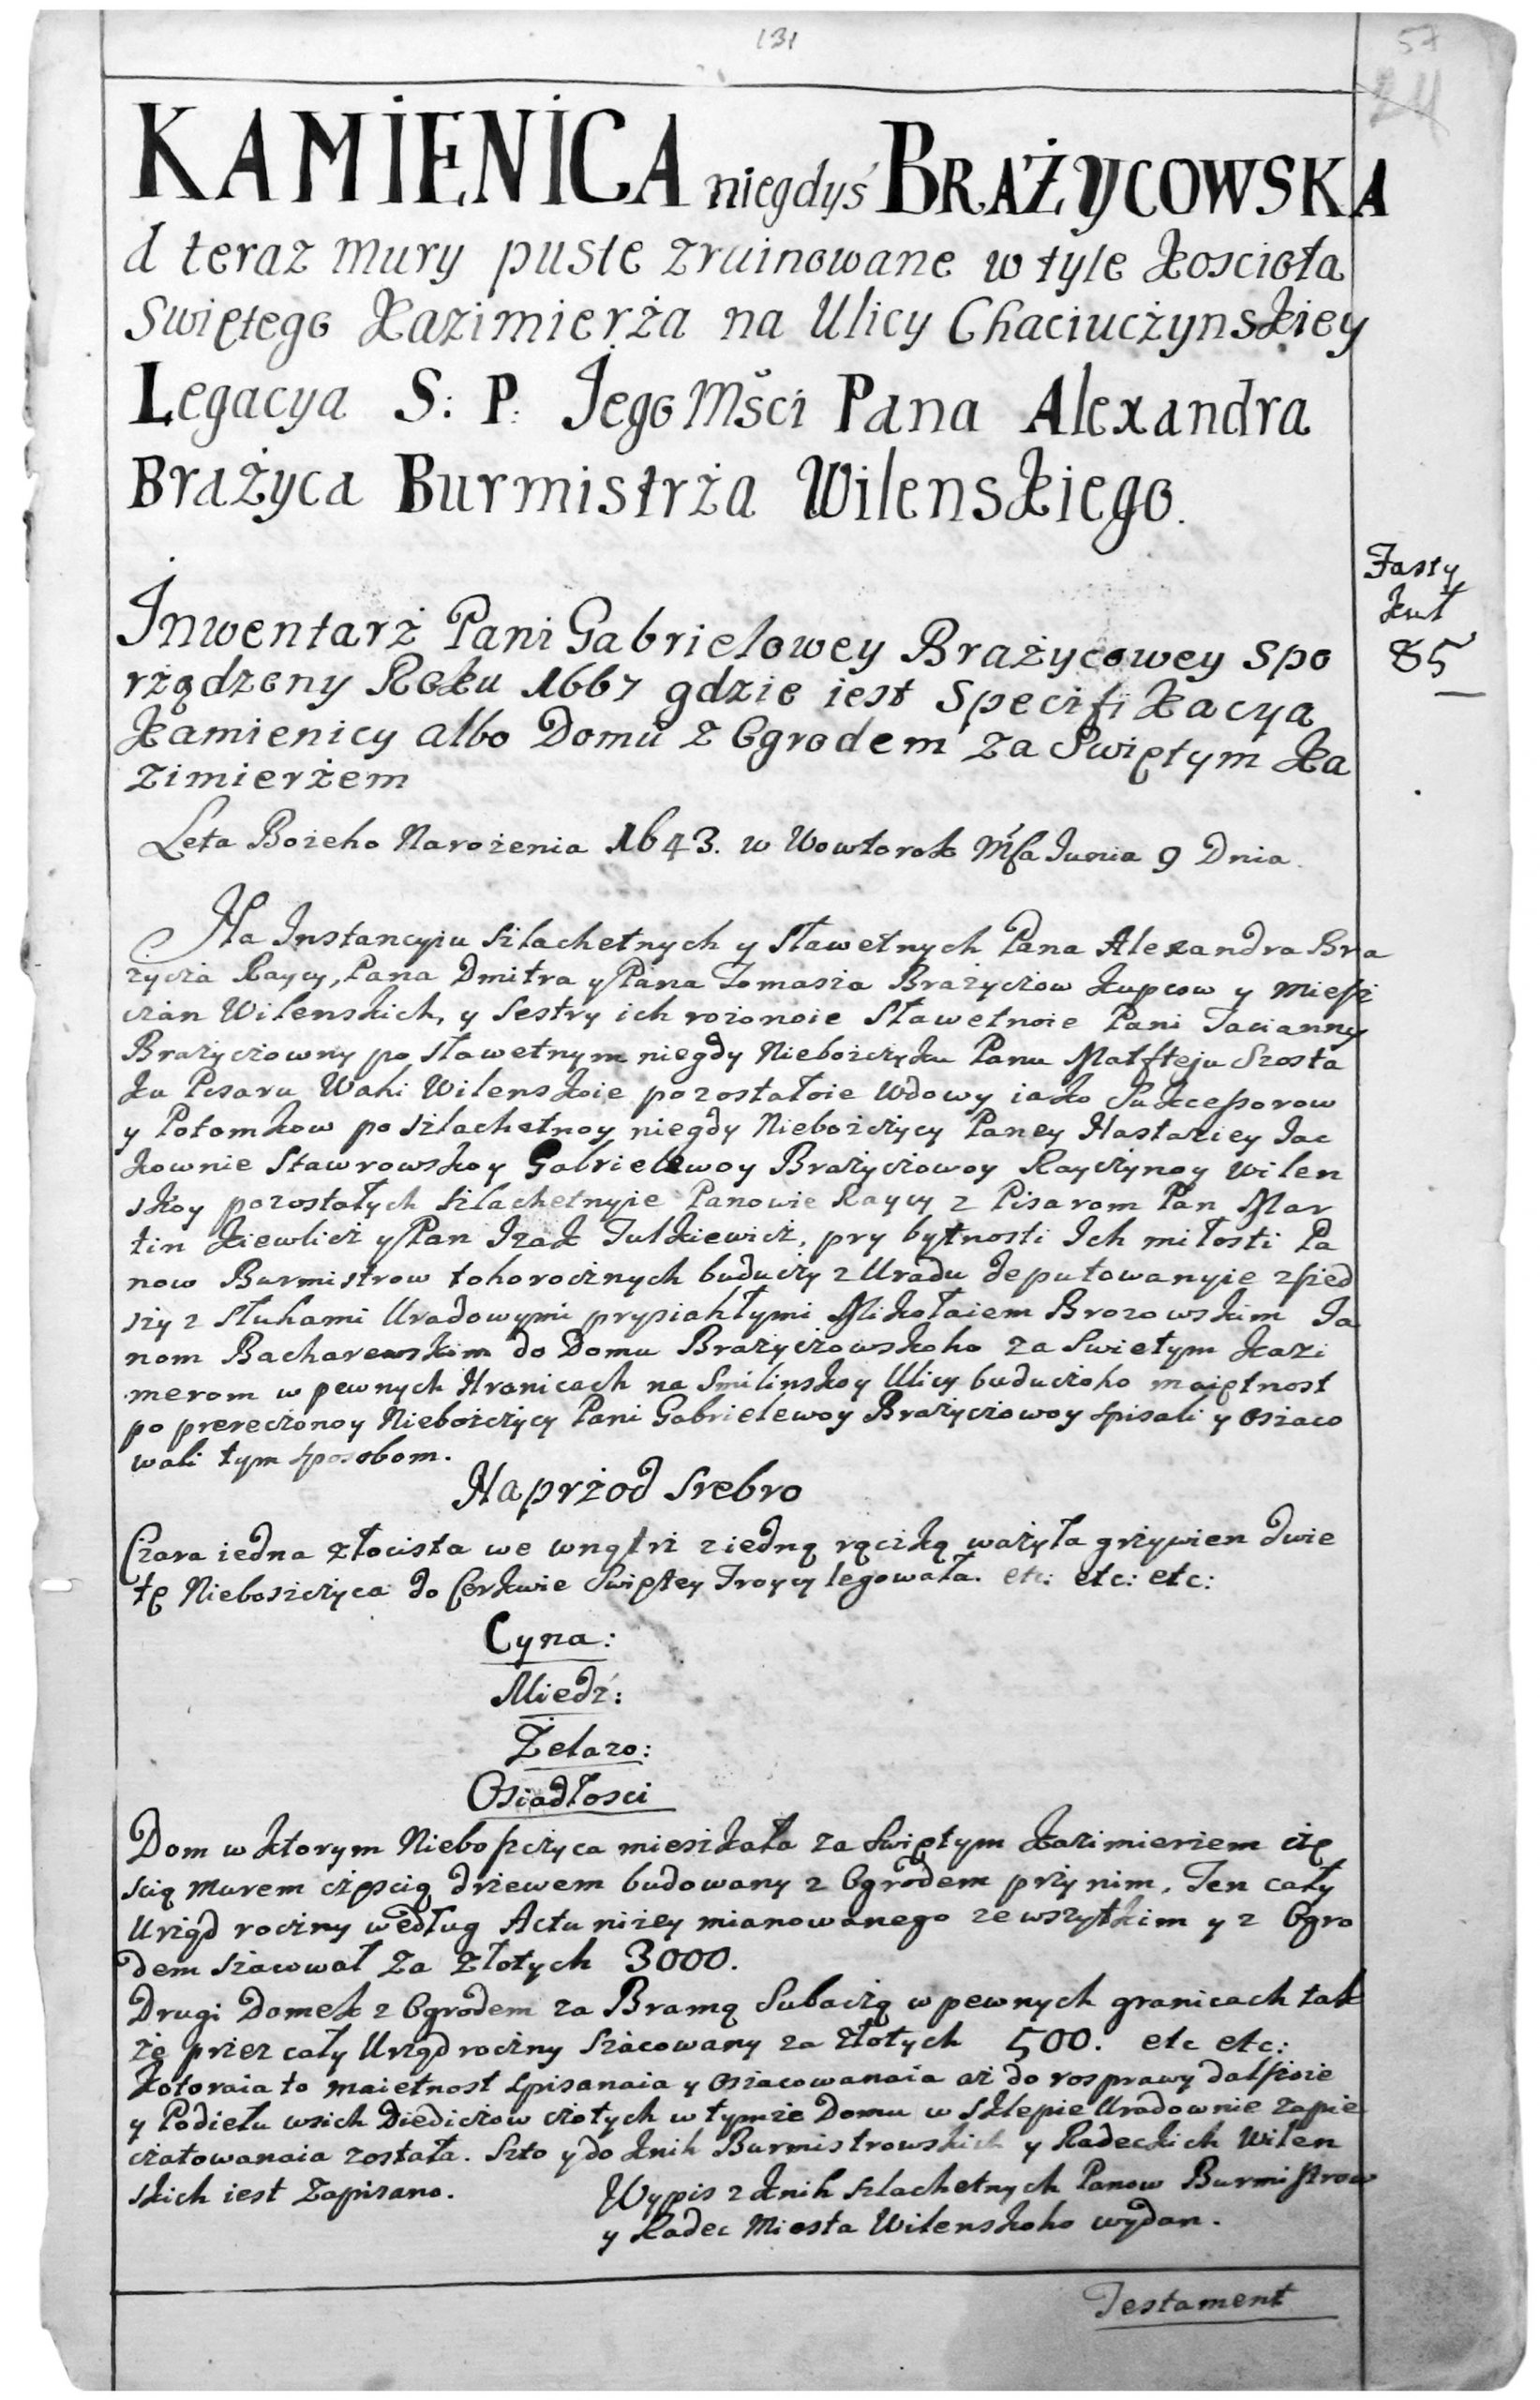 131
57
24
KAMIENICA niegdyś BRAŻYCOWSKA
á teraz mury puste zruinowane w tyle Koscioła
Swiętego Kazimierża na Ulicy Chaciuczynskiey
Legacya S: P: Jego Mści Pana Alexandra
Brażyca Burmistrża Wilenskiego.
Fasty
85
Jnwentarż Pani Gabrielowey Brażycowey spo
rżądzony Roku 1667 gdzie iest specifikacya
Kamienicy albo Domu z Ogrodem za Swiętym Ka
zimierżem
Leta Bożeho Narożenia 1643. w Wowtorok Mśca Junia 9 Dnia.
Na Instancyiu szlachetnych y sławetnych Pana Alexandra Bra
życza Raycy, Pana Dmitra y Pana Tomasza Brażyczow Kupcow y Miesz
czan Wilenskich, y Sestry ich rożonoie Sławetnoie Pani Tacianny
Brażyczowny po sławetnym niegdy Niebożczyku Panu Matfteju Szosta
ku Pisaru Wahi Wilenskoie pozostałoie Wdowy iako Sukcessorow
y Potomkow po szlachetnoy niegdy Niebożczycy Paney Nastaziey Jac
kownie Stawrowskoy Gabrielewoy Brażyczowoy Rayczynoy Wilen
skoy pozostałych szlachetnyie Panowie Raycy z Pisarom Pan Mar
tin Kiewlicz y Pan Izak Julkiewicz, pry bytnosti Ich miłosti Pa
now Burmistrow tohorocznych buduczy z Uradu deputowanyie zszed
szy z Słuhami Uradowymi prysiahłymi Mikołaiem Brozowskim Ja
nom Bacharewskim do Domu Brażyczowskoho za Swietym Kazi
merom w pewnych Hranicach na Smilinskoy Ulicy buduczoho maiętnost
po prereczonoy Niebożczycy Pani Gabrielewoy Brażyczowoy spisali y oszaco
wali tym sposobom.
Naprżod Srebro
Czara iedna złocista we wnątrż z iedną rączką ważyła grżywien dwie
tę Nieboszczyca do Cerkwie Swiętey Troycy legowała. etc: etc: etc:
Cyna:
Miedź:
Żelazo:
Osiadłosci
Dom w ktorym Nieboszczyca mieszkała za Swiętym Kazimierżem czę
scią murem częscią drżewem budowany z Ogrodem przy nim, Ten cały
Urżąd roczny według Actu niżey mianowanego ze wszytkim y z Ogro
dem szacował za złotych 3000.
Drugi Domek z Ogrodem za Bramą Subaczą w pewnych granicach tak
że przez cały Urżąd roczny szacowany za złotych 500. etc etc:
Kotoraia to maietnost spisanaia y oszacowanaia aż do rosprawy dalszoie
y Podiełu wsich Diediczow czotych w tymże Domu w Sklepie Uradownie zapie
czatowanaia została. Szto y do Knih Burmistrowskich y Radeckich Wilen
skich iest zapisano.
Wypis z Knih szlachetnych Panow Burmistrow
y Radec Miasta Wilenskoho wydan.
Testament